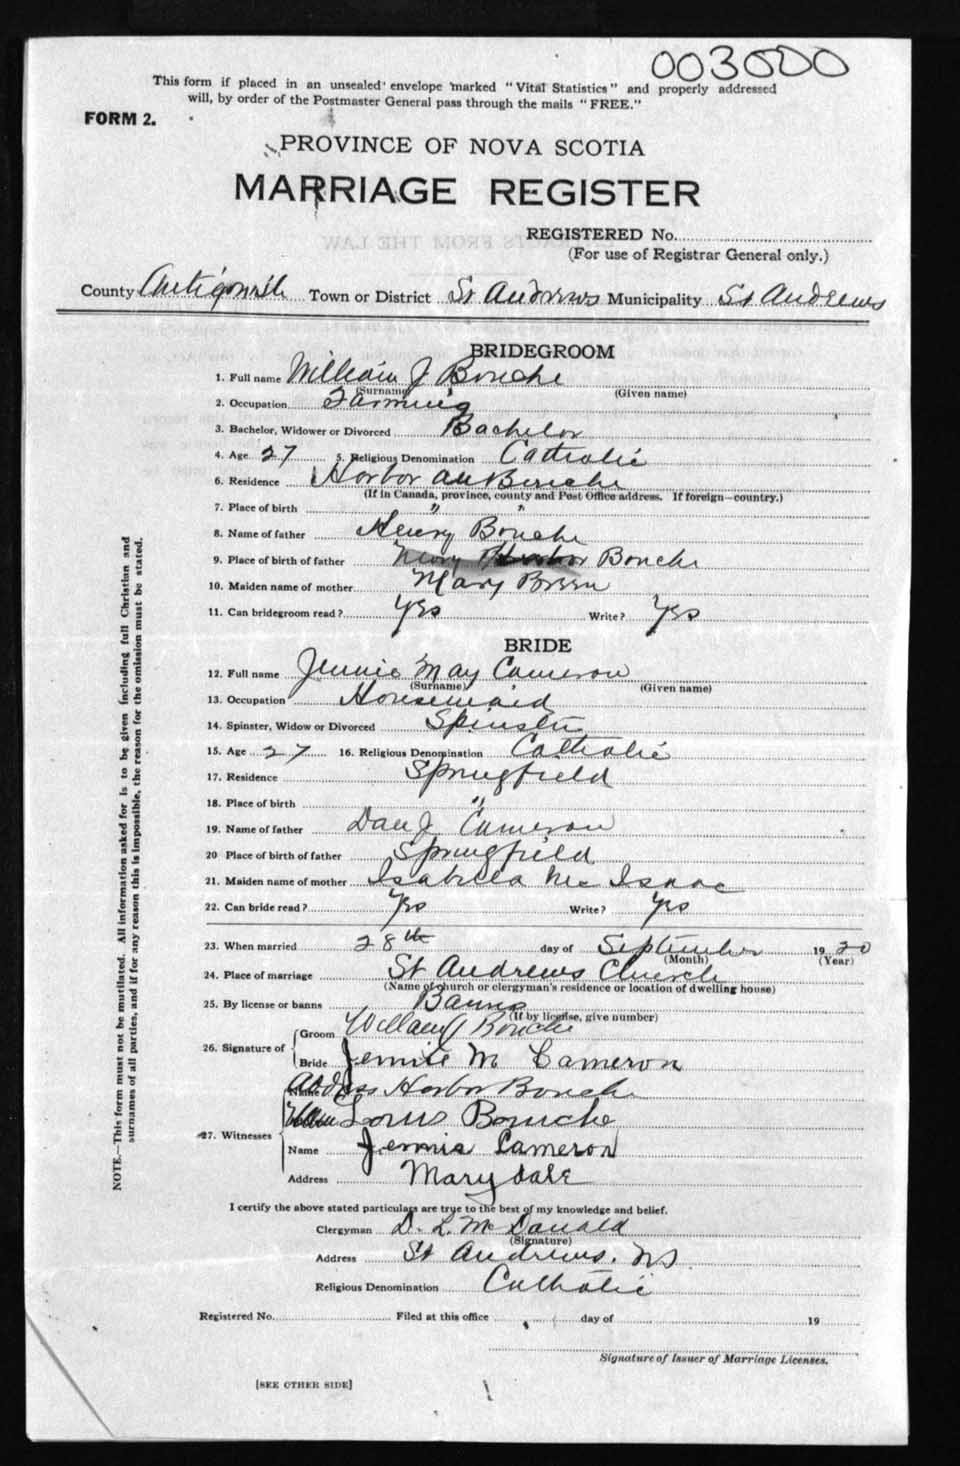 003500
This form if placed in an unsealed envelope marked "Vital Statistics" and properly addressed
will, by order of the Postmaster General pass through the mails "FREE."
FORM 2.
PROVINCE OF NOVA SCOTIA
MARRIAGE REGISTER
REGISTERED No.
(For use of Registrar General only.)
County Antigonish Town or District St Andrews Municipality St Andrews
BRIDEGROOM
1. Full name William J Bouche
(Surname) (Given name)
2. Occupation Farming
3. Bachelor, Widower or Divorced Bachelor
4. Age 27 5. Religious Denomination Catholic
6. Residence Harbor au Bouche
(If in Canada, province, county and Post Office address. If foreign—country.)
7. Place of birth " "
8. Name of father Henry Bouche
9. Place of birth of father Harbor Bouche
10. Maiden name of mother Mary Breen
11. Can bridegroom read? Yes Write? Yes
BRIDE
12. Full name Jennie May Cameron
(Surname) (Given name)
13. Occupation Housemaid
14. Spinster, Widow or Divorced Spinster
15. Age 27 16. Religious Denomination Catholic
17. Residence Springfield
18. Place of birth "
19. Name of father Dan J Cameron
20 Place of birth of father Springfield
21. Maiden name of mother Isabella McIsaac
22. Can bride read? Yes Write? Yes
23. When married 28th day of September 1920
(Month) (Year)
24. Place of marriage St Andrews Church
(Name of church or clergyman's residence or location of dwelling house)
25. By license or banns Banns
(If by license, give number)
26. Signature of Groom William J Bouche
Bride Jennie M Cameron
Address Harbor Bouche
Name Louis Bouche
27. Witnesses
Name Jennie Cameron
Address Marydale
I certify the above stated particulars are true to the best of my knowledge and belief.
Clergyman D. L. McDonald
(Signature)
Address St Andrews. NS
Religious Denomination Catholic
Registered No. Filed at this office day of 19
Signature of Issuer of Marriage Licenses.
[SEE OTHER SIDE]
NOTE.—This form must not be mutilated. All information asked for is to be given including full Christian and
surnames of all parties, and if for any reason this is impossible, the reason for the omission must be stated.